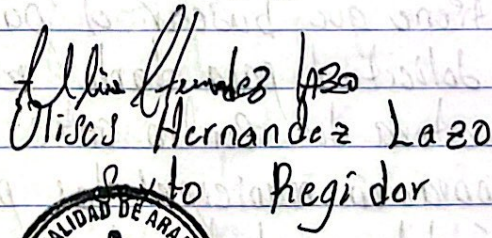 Hernandez Lazo
Ulises Hernandez Lazo
Sexto Regidor
ALIDAD DE ARA